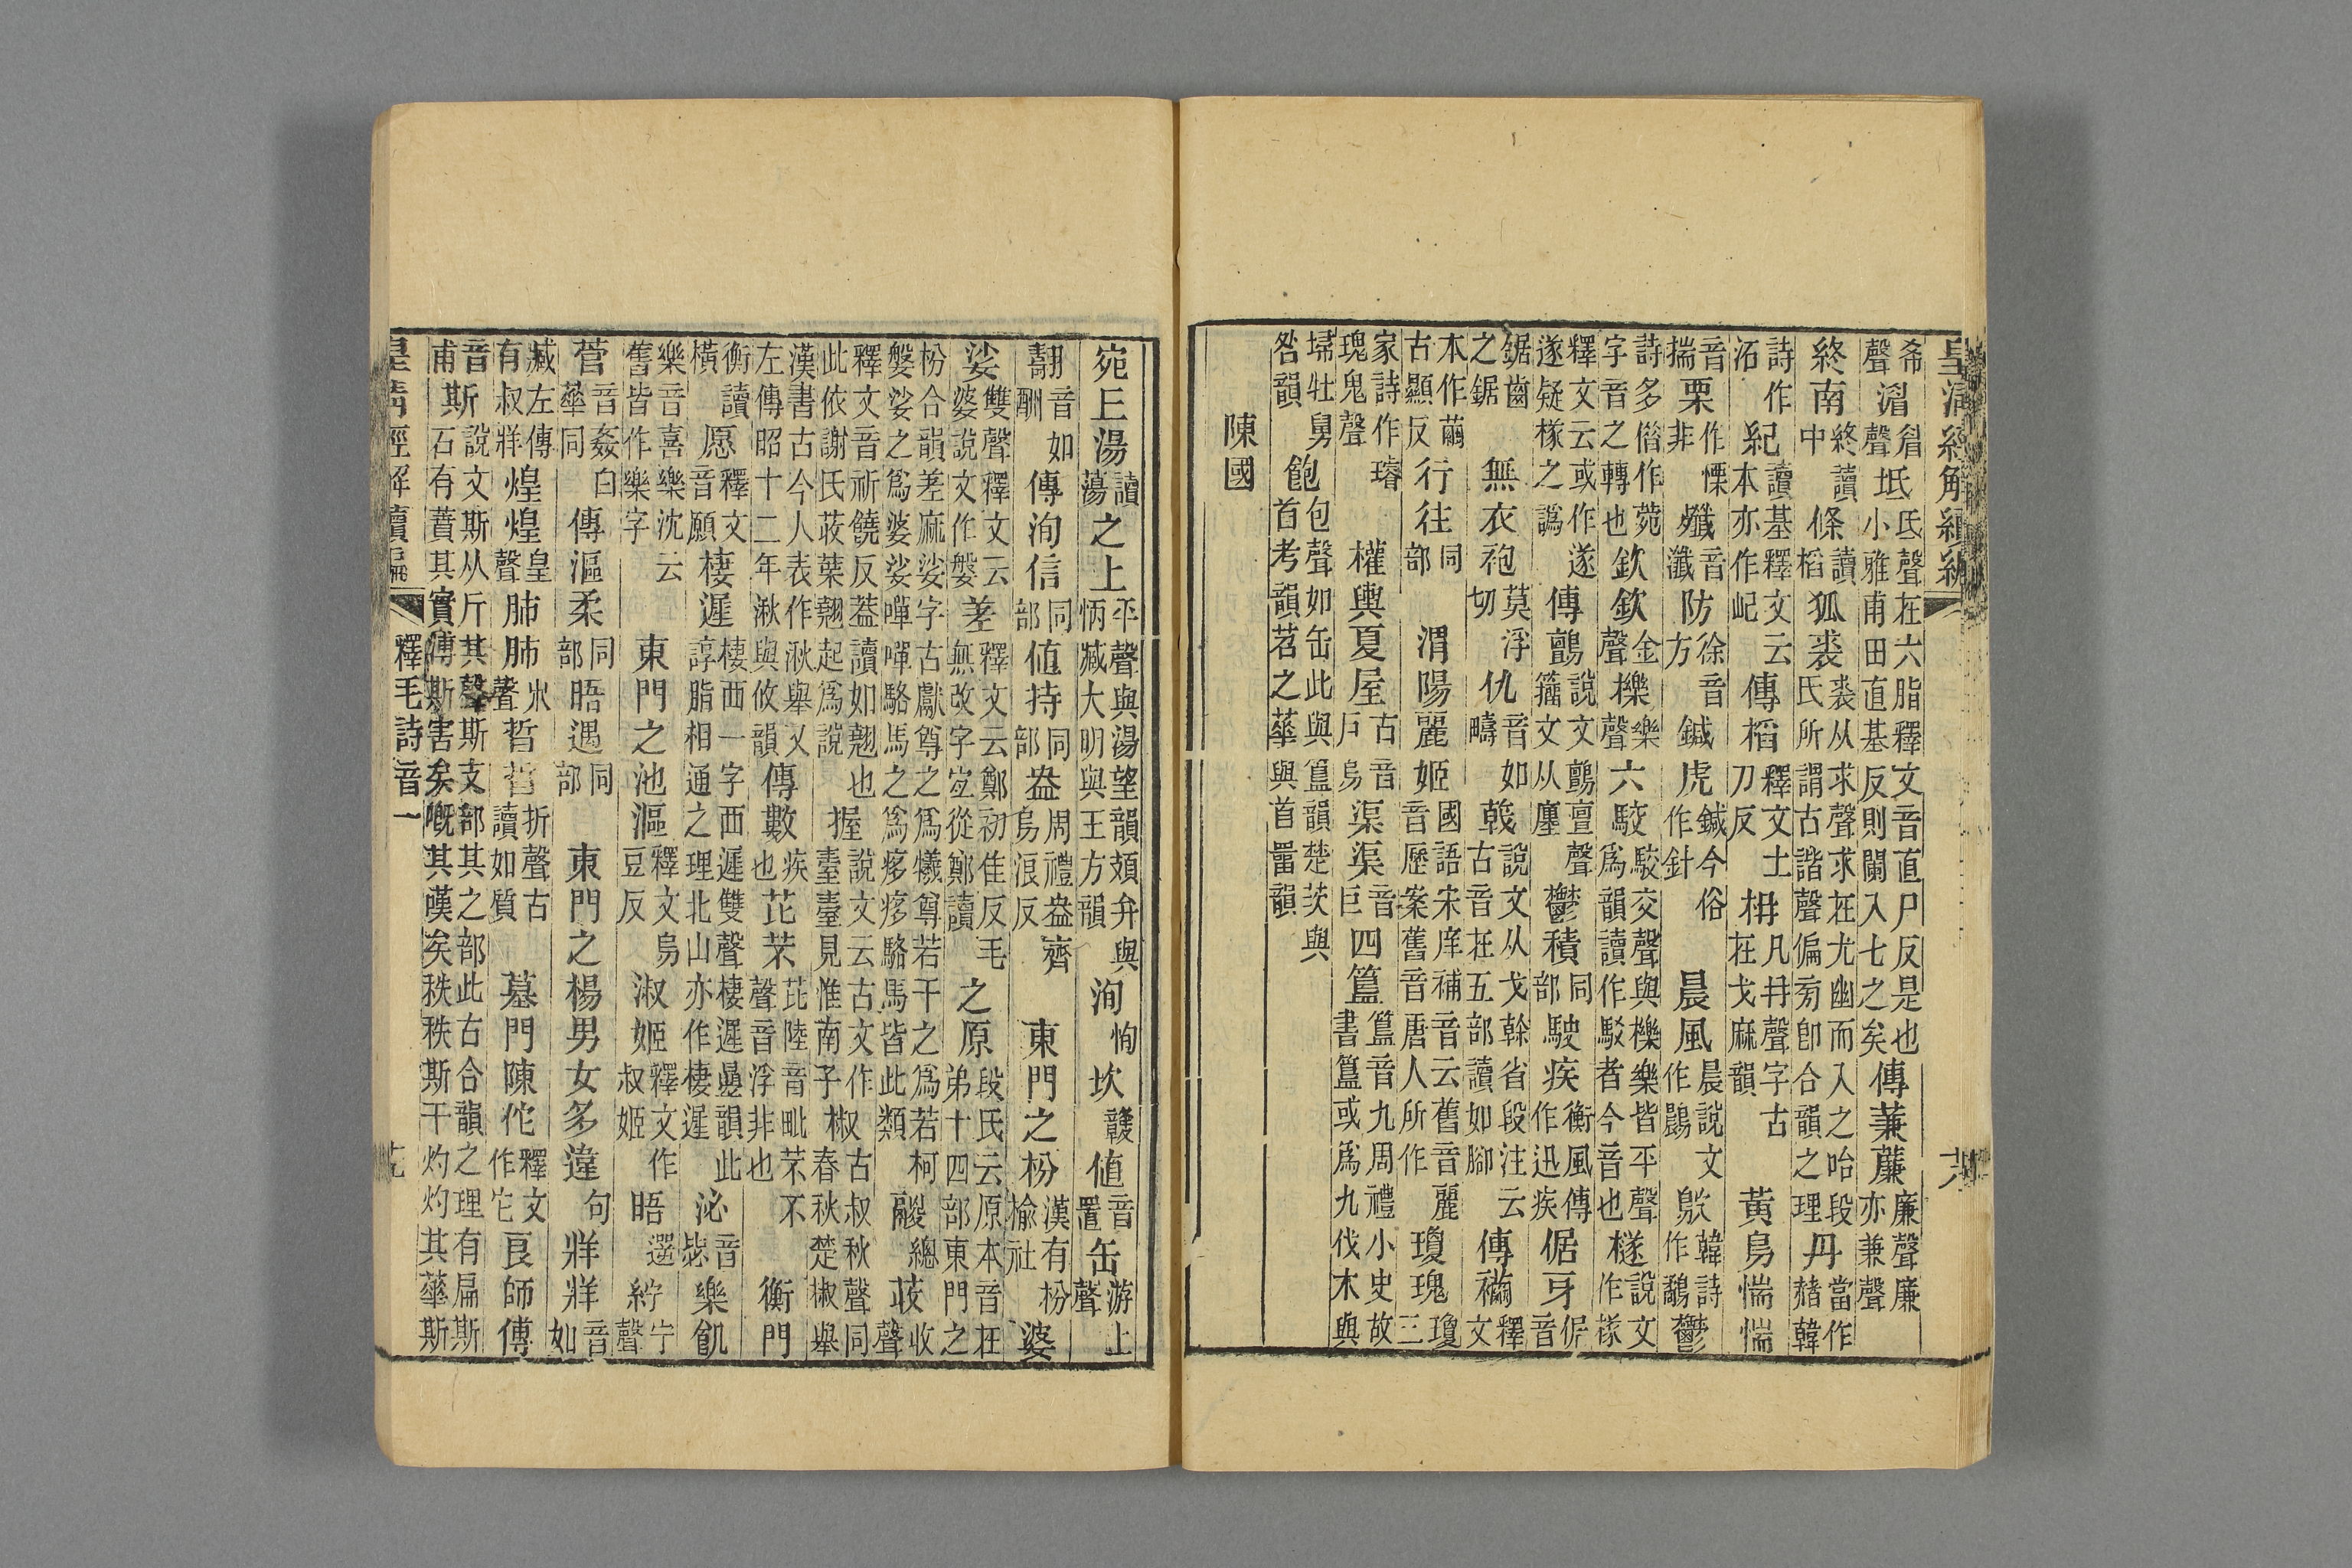 皇清經解續編
希聲湄眉聲坻氏聲在六脂釋文音直尸反是也小雅甫田直基反則闌入七之矣傳蒹薕廉聲廉亦兼聲
終南終讀中條讀稻狐裘裘从求聲求在尤幽而入之咍段氏所謂古諧聲偏旁卽合韻之理丹當作赭韓
詩作沰紀讀基釋文云本亦作屺傳稻釋文土刀反枏凡冄聲字古在戈麻韻黃鳥惴惴
音揣栗作慄非殲音瀸防徐音方鍼虎鍼今俗作針晨風晨說文作鷐鴥韓詩作鷸鬱
詩多借作菀字音之轉也欽欽金聲櫟樂聲六駮駮交聲與櫟樂皆平聲爲韻讀作駁者今音也檖說文作㯤
釋文云或作遂遂疑㯤之譌傳鸇說文鸇亶聲籀文从廛鬱積同部駛疾衡風傳作迅疾倨牙倨音
鋸齒之鋸無衣袍莫浮切仇音如疇戟說文从戈倝省段注云古音在五部讀如腳傳襺釋文
本作繭古顯反行往同部渭陽麗姬國語宋庠補音云舊音麗音歷案舊音唐人所作瓊瑰瓊三
家詩作璿瑰鬼聲權輿夏屋古音戶烏渠渠音巨四簋簋音九周禮小史故書簋或爲九伐木與
埽牡舅咎韻飽包聲如缶此與簋韻楚茨與首考韻苕之華與首罶韻
陳國
宛丘湯讀蕩之上平聲與湯望韻頍弁與怲臧大明與王方韻洵恂坎竷值音置缶游上聲
翿音如酬傳洵信同部值持同部盎周禮盎齊烏浪反東門之枌漢有枌榆社婆
娑雙聲釋文云婆說文作媻差釋文云鄭初佳反毛無改字宜從鄭讀之原段氏云原本音在弟十四部東門之
枌合韻差麻娑字古獻尊之爲犧尊若干之爲若柯媻娑之爲婆娑嘽嘽駱馬之爲痑痑駱馬皆此類鬷總荍收聲
釋文音祈饒反葢讀如翹也此依謝氏荍葉翹起爲說握說文云古文作臺臺見惟南子椒古叔秋聲同春秋楚椒舉
漢書古今人表作湫舉又左傳昭十二年湫與攸韻傳數疾也芘芣芘陸音毗芣不聲音浮非也衡門
衡讀橫愿釋文音願棲遲棲西一字西遲雙聲棲遲曡韻此諄脂相通之理北山亦作棲遲泌音毖樂飢
樂音喜樂沈云舊皆作樂字東門之池漚釋文烏豆反淑姬釋文作叔姬晤遻紵宁聲
菅音姦臼華同傳漚柔同部晤遇同部東門之楊男女多違句牂牂音如
臧左傳有叔牂煌煌皇聲肺肺巿聲晢晢折聲古讀如質墓門陳佗釋文作它良師傅
音甫斯說文斯从斤其聲斯支部其之部此古合韻之理有扁斯石有蕡其實傳斯害矣嘅其嘆矣秩秩斯干灼灼其華斯
皇清經解續編 釋毛詩音一